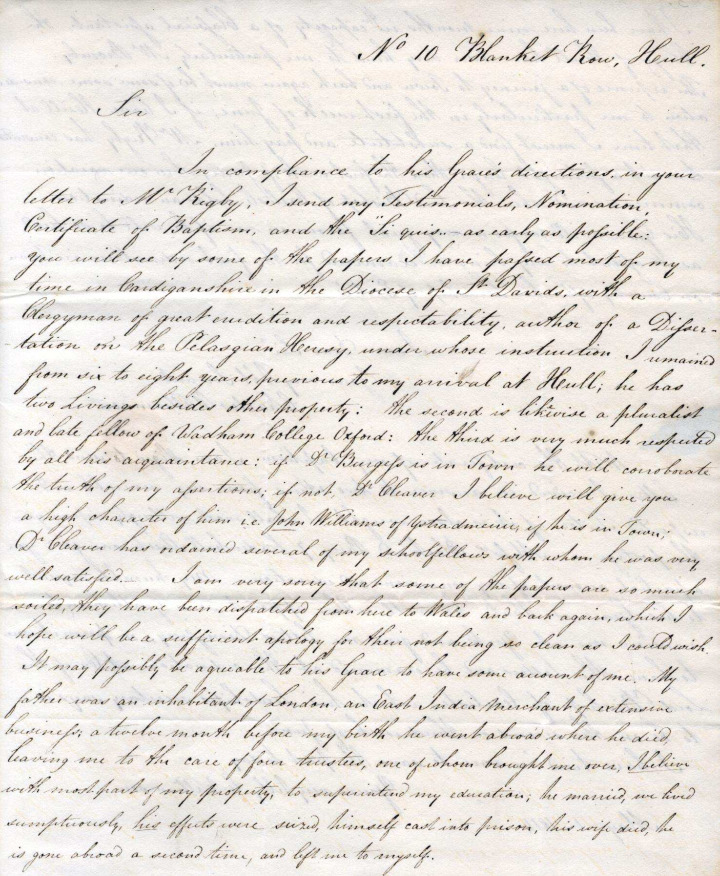 No 10 Blanket Row, Hull.
Sir
In compliance to his Grace's directions, in your
letter to Mr Rigby, I send my Testimonials, Nomination,
Certificate of Baptism, and the "Si quis – as early as possible:
you will see by some of the papers I have passed most of my
time in Cardiganshire in the Diocese of St Davids, with a
Clergyman of great erudition and respectability, author of a Disser-
tation on the Pelasgian Heresy, under whose instruction I remained
from six to eight years, previous to my arrival at Hull; he has
two Livings besides other property: the second is likewise a pluralist
and late fellow of Wadham College Oxford: the third is very much respected
by all his acquaintance: if Dr Burgess is in Town he will corroborate
the truth of my assertions; if not, Dr Cleaver I believe will give you
a high character of him i.e. John Williams of Ystradmeiric, if he is in Town;
Dr Cleaver has ordained several of my schoolfellows with whom he was very
well satisfied. – I am very sorry that some of the papers are so much
soiled, they have been dispatched from here to Wales and back again, which I
hope will be a sufficient apology for their not being so clean as I could wish.
It may possibly be agreable to his Grace to have some account of me. My
father was an inhabitant of London, an East India Merchant of extensive
business; a twelve month before my birth he went abroad where he died,
leaving me to the care of four trustees, one of whom brought me over, I believe
with most part of my property, to superintend my education; he married, we lived
sumptuously, his effects were seized, himself cast into prison, his wife died, he
is gone abroad a second time, and left me to myself.